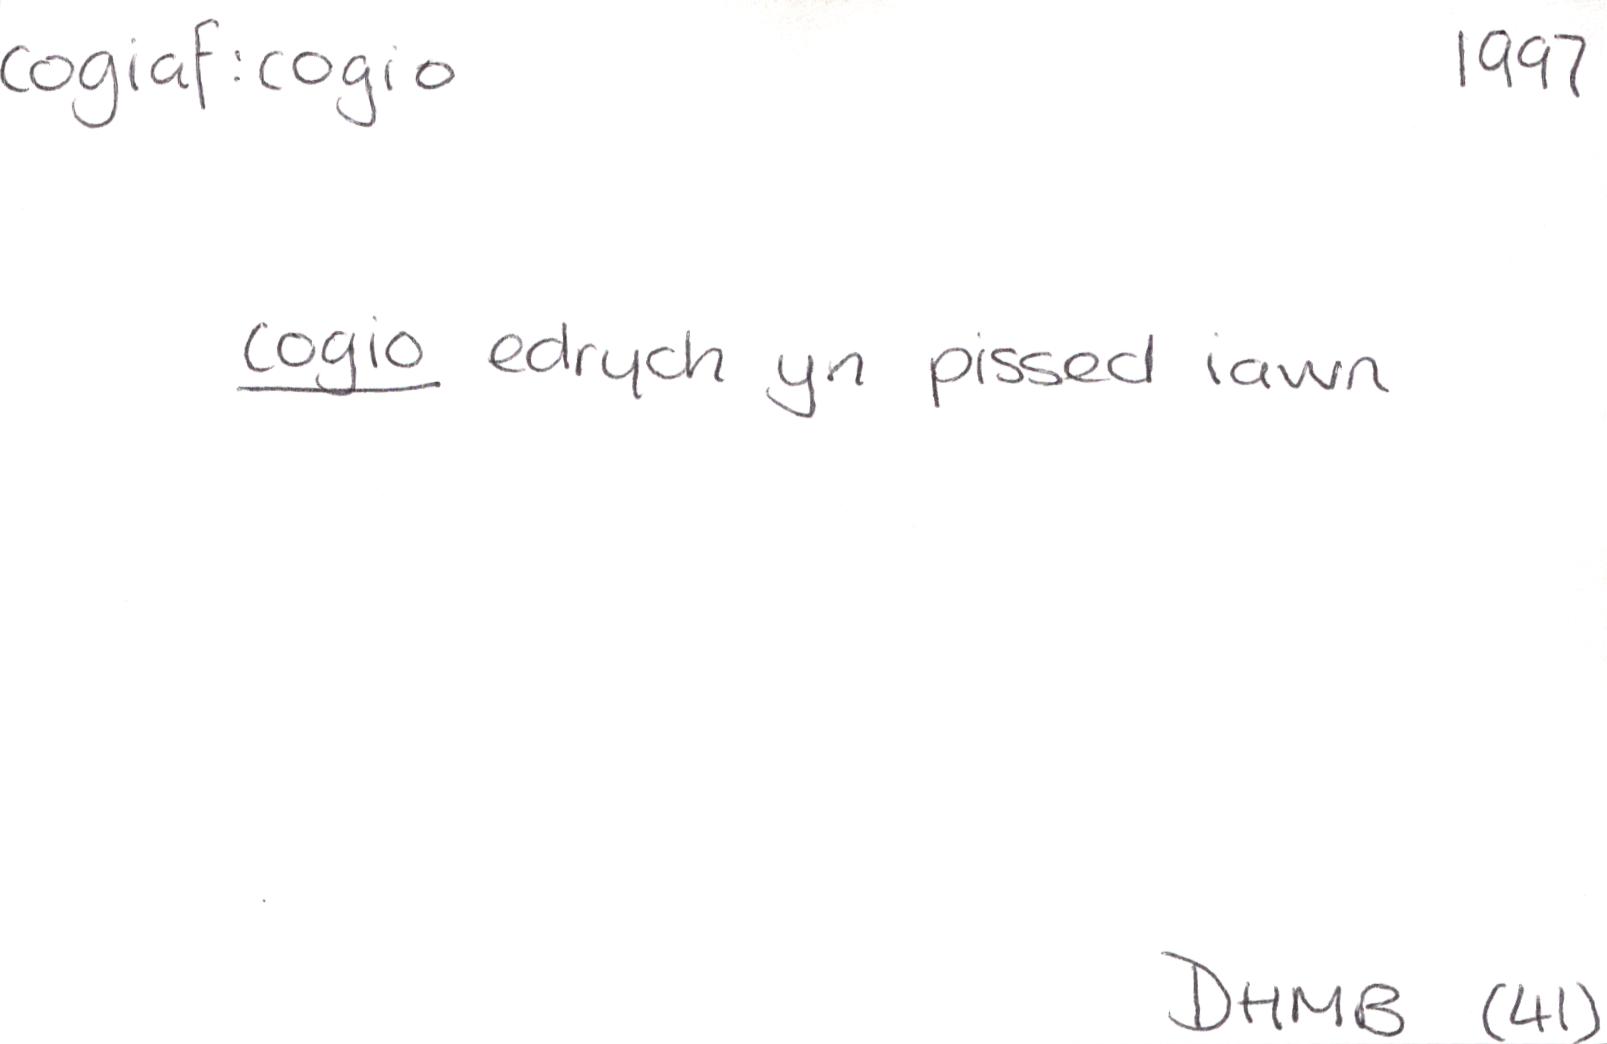 cogiaf: cogio 1997
cogio edrych yn pissed iawn
DHMB (41)